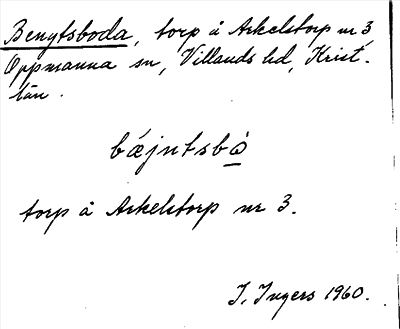 Bengtsboda, torp å Arkelstorp nr 3,
Oppmanna sn, Villands hd, Krist.
län.
bæ̀jntsbò̲
torp å Arkelstorp nr 3.
I. Ingers 1960.